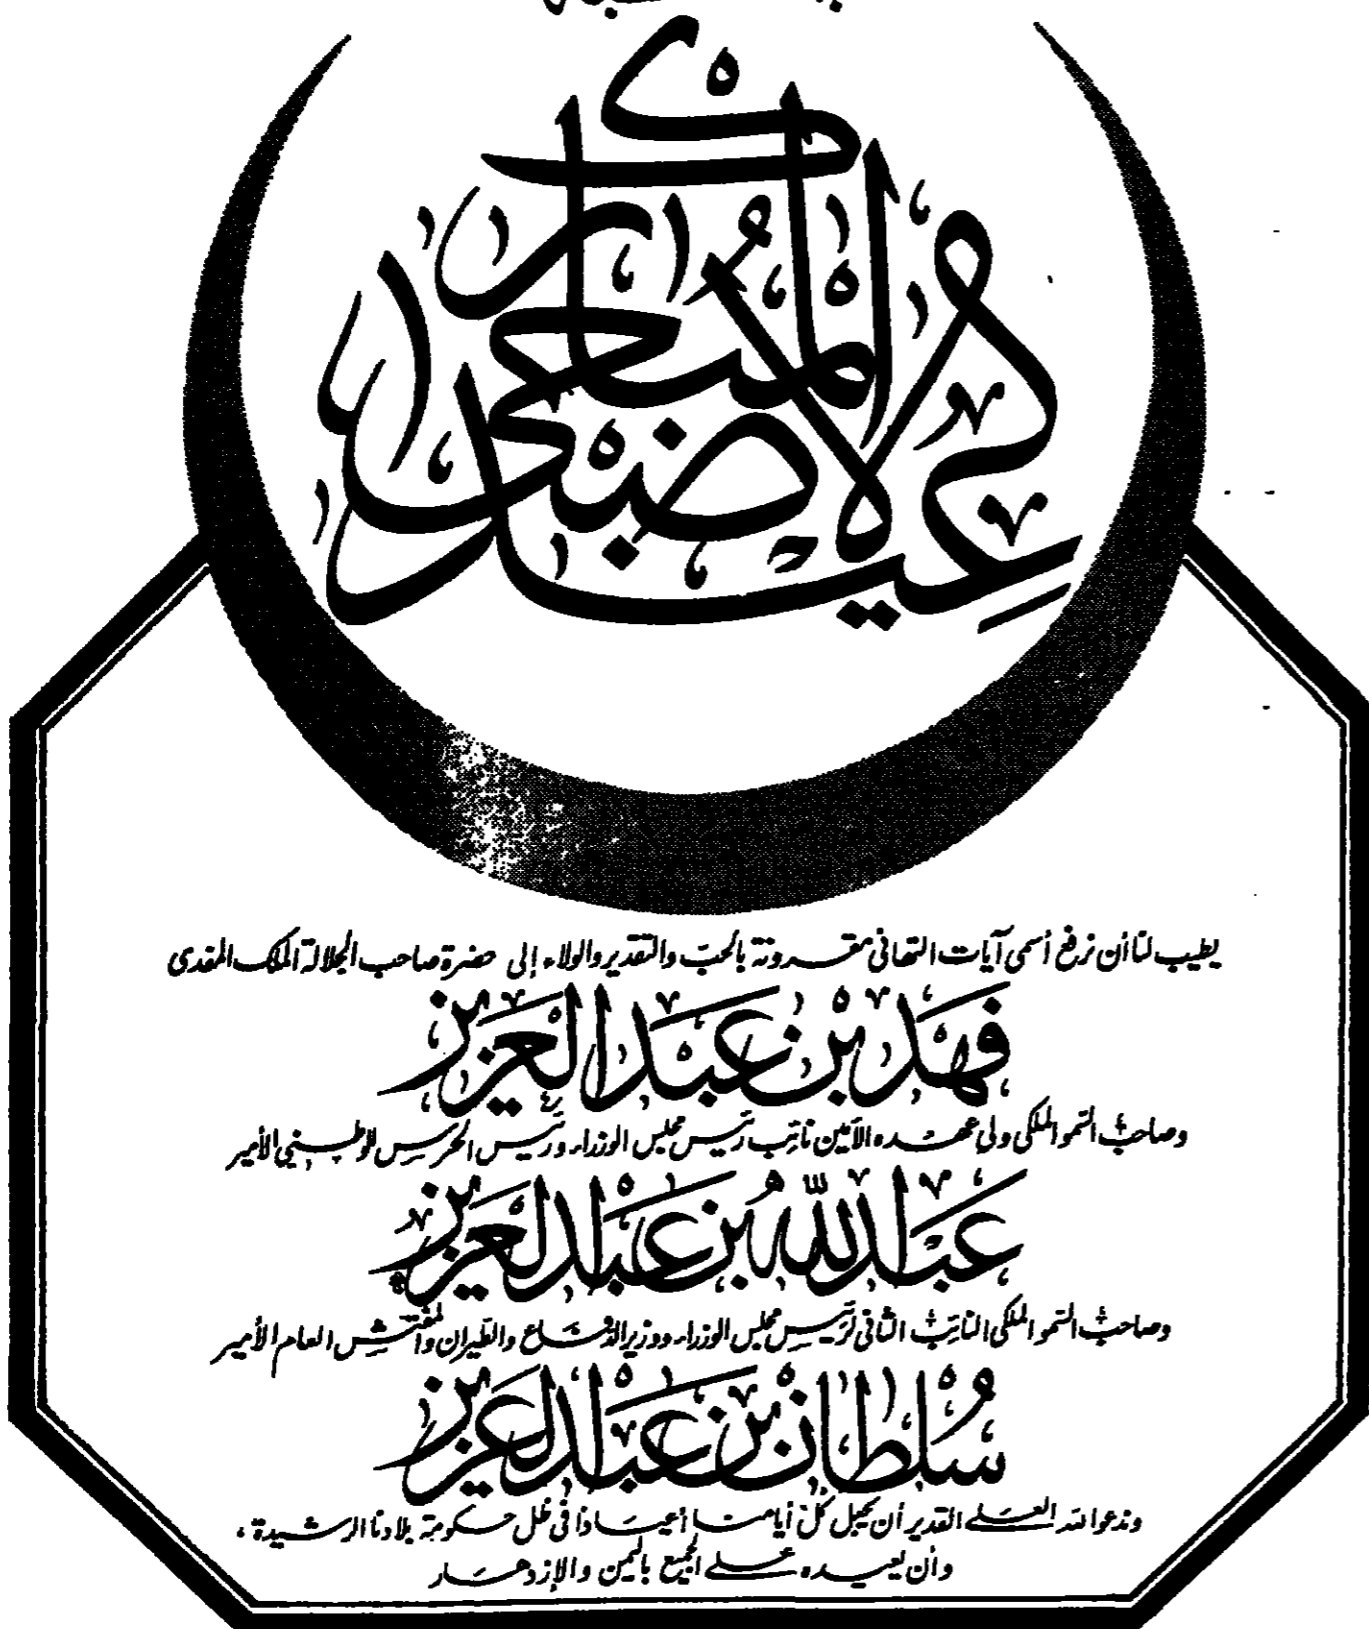 عيد الأضحى المبارك
يطيب لنا أن نرفع أسمى آيات التهاني مقرونة بالحب والتقدير والولاء إلى حضرة صاحب الجلالة الملك المفدى
فهد بن عبد العزيز
وصاحب السمو الملكي ولي عهده الأمين نائب رئيس مجلس الوزراء ورئيس الحرس الوطني الأمير
عبد الله بن عبد العزيز
وصاحب السمو الملكي النائب الثاني لرئيس مجلس الوزراء ووزير الدفاع والطيران والمفتش العام الأمير
سلطان بن عبد العزيز
وندعو الله العلي القدير أن يجعل كل أيامنا أعيادا في ظل حكومة بلادنا الرشيدة ،
وأن يعيده على الجميع باليمن والإزدهار